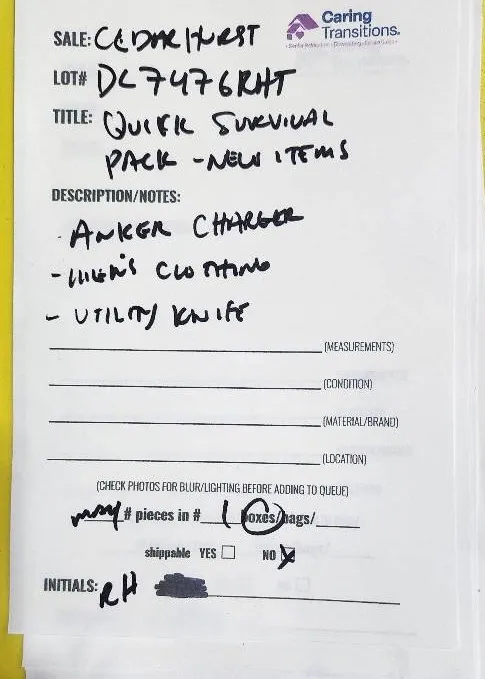 SALE: CEDARHURST
Caring
Transitions®
LOT# DC7476RHT
TITLE: QUICK SURVIVAL
PACK - NEW ITEMS
DESCRIPTION/NOTES:
- ANKER CHARGER
- MEN'S CLOTHING
- UTILITY KNIFE
(MEASUREMENTS)
(CONDITION)
(MATERIAL/BRAND)
(LOCATION)
(CHECK PHOTOS FOR BLUR/LIGHTING BEFORE ADDING TO QUEUE)
many # pieces in # 1 boxes/bags/
shippable YES NO
INITIALS: RH